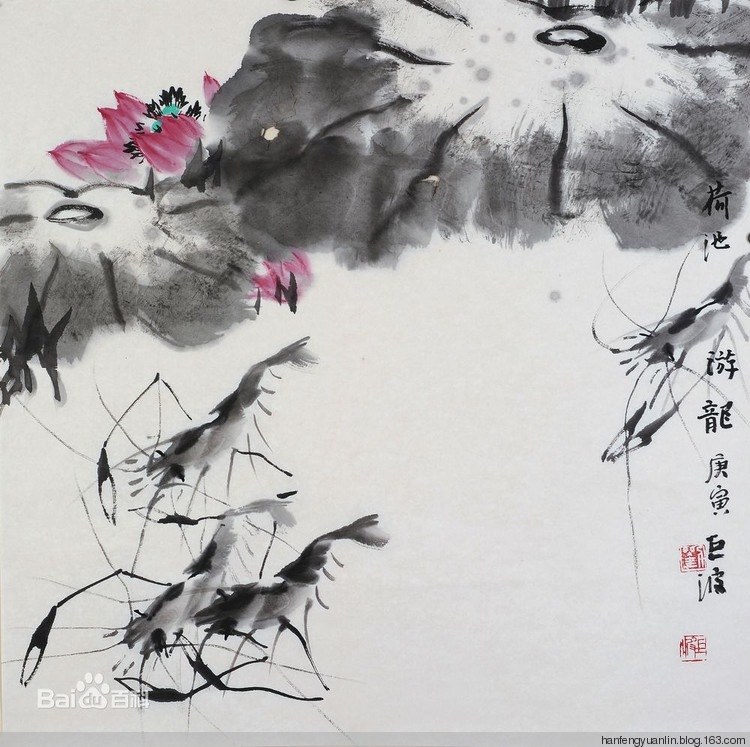 荷池游龍庚寅巨波
Bai百科
hanfengyuanlin.blog.163.com